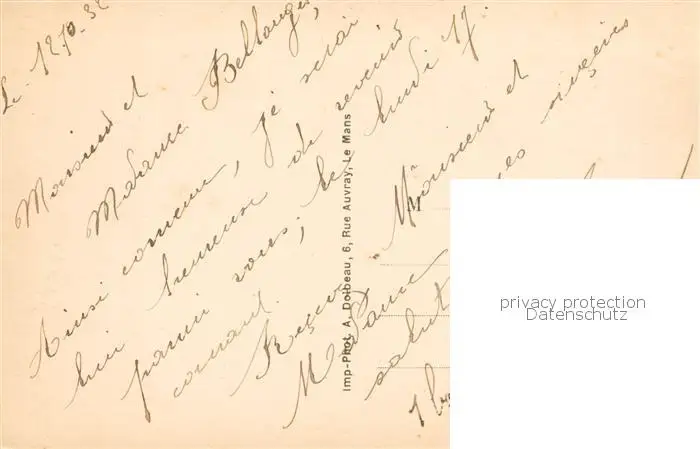 Le 12.10.32
Monsieur et
Madame Bellanger,
Ainsi convenu, je serai
bien heureuse de revenir
parmi vous; le lundi 17
courant.
Recevez, Monsieur et
Madame, mes sincères
salut
Imp-Phot. A. Dolbeau, 6, Rue Auvray, Le Mans
M
privacy protection
Datenschutz